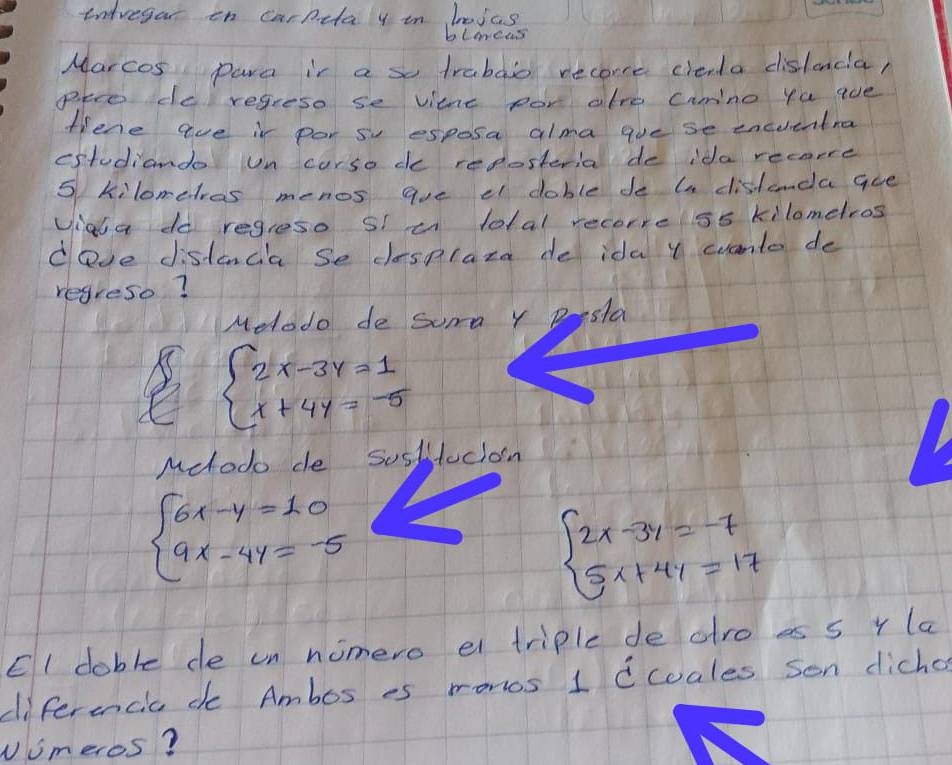 entregar en carpeta y en hojas
blancas
Marcos para ir a su trabajo recorre cierta distancia,
pero de regreso se viene por otro camino ya que
tiene que ir por su esposa alma que se encuentra
estudiando un curso de reposteria de ida recorre
5 kilometros menos que el doble de la distancia que
viaja de regreso si en total recorre 55 kilometros
¿Que distancia se desplaza de ida y cuanto de
regreso?
Metodo de suma y resta
{2x-3y=1
x+4y=-5
Metodo de sustitución
{6x-y=10
9x-4y=-5
{2x-3y=-7
5x+4y=17
El doble de un número el triple de otro es 5 y la
diferencia de Ambos es menos 1 ¿cuales son dichos
Números?